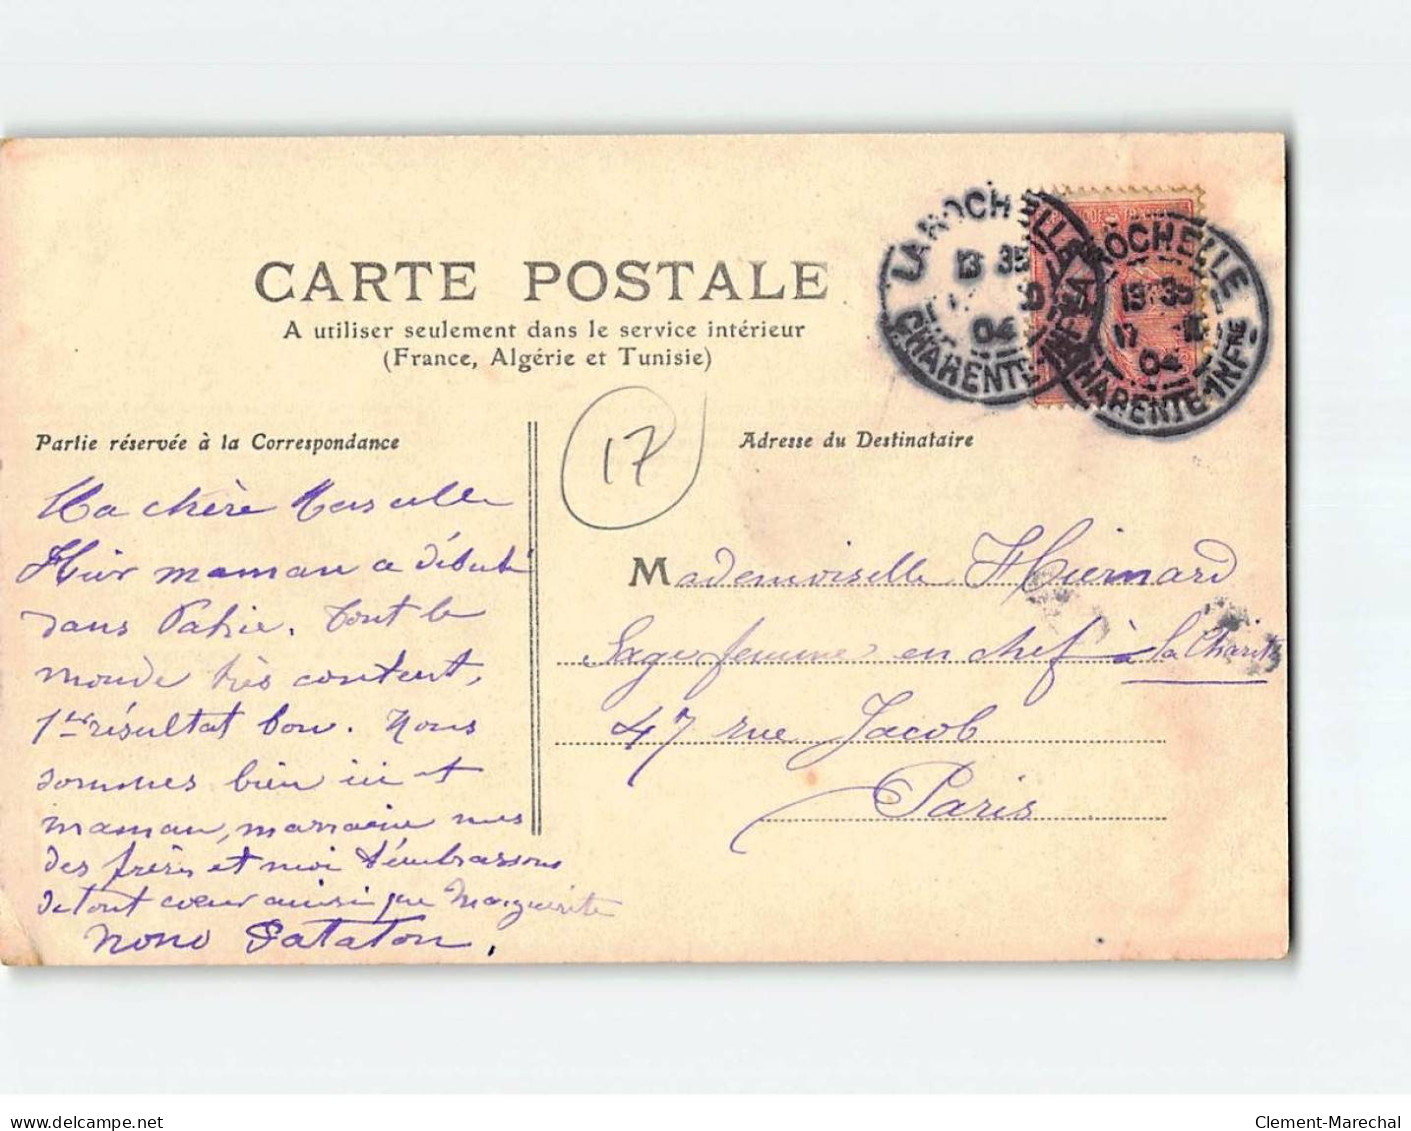 CARTE POSTALE
A utiliser seulement dans le service intérieur
(France, Algérie et Tunisie)
LA ROCHELLE
13 35
04
CHARENTE-INFRE
LA ROCHELLE
13 35
17
04
CHARENTE-INFRE
Partie réservée à la Correspondance
17
Adresse du Destinataire
Ma chère Marcelle
Hier maman a débuté
dans Patrie. Tout le
monde très content,
1er résultat bon. Nous
sommes bien ici et
maman, marraine mes
des frères et moi t'embrassons
de tout cœur ainsi que Marguerite
Nono Pataton.
Mademoiselle Hiernard
Sage femme en chef à la Charité
47 rue Jacob
Paris
delcampe.net
Clement-Marechal